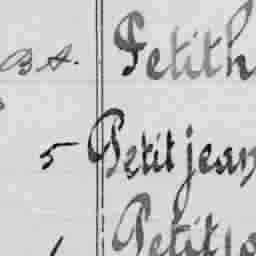 B A. Petith
5 Petitjean
Petitjo